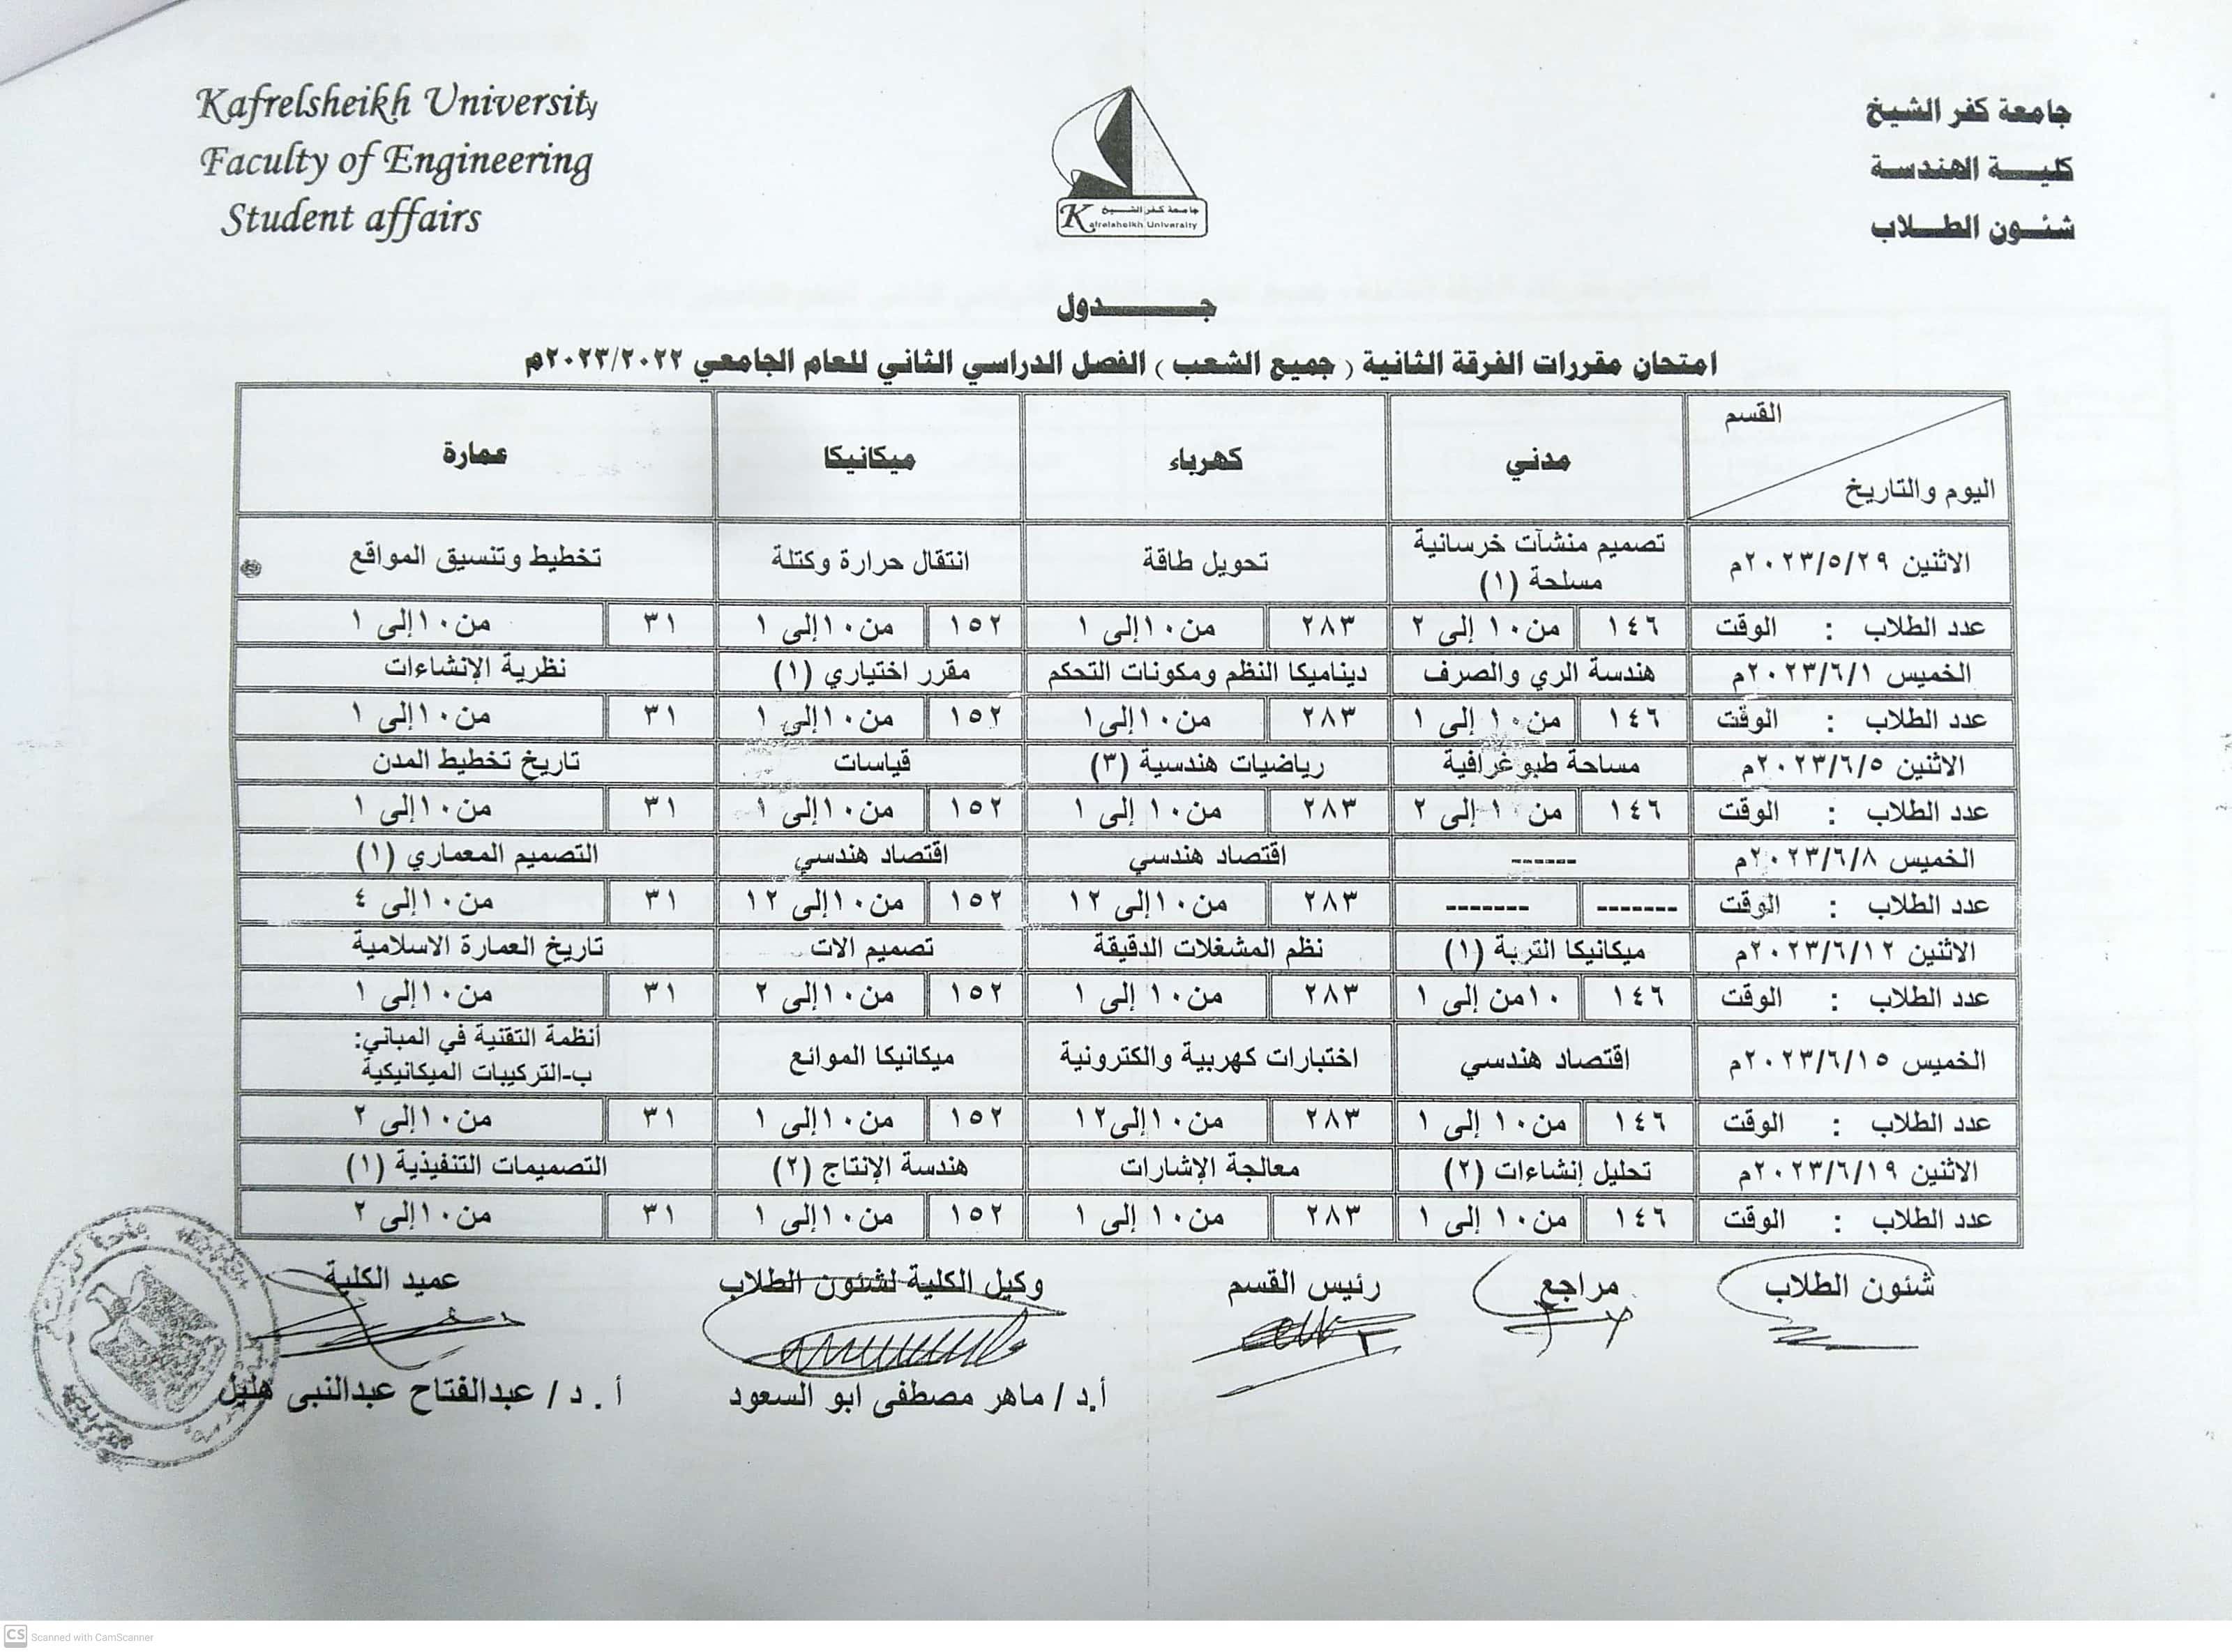 Kafrelsheikh University
Faculty of Engineering
Student affairs
جامعة كفر الشيخ
Kafrelsheikh University
جامعة كفر الشيخ
كليـــة الهندسـة
شئـــون الطـــلاب
جـــــــدول
امتحان مقررات الفرقة الثانية ( جميع الشعب ) الفصل الدراسي الثاني للعام الجامعي ٢٠٢٣/٢٠٢٢م
القسم
اليوم والتاريخ
مدني
كهرباء
ميكانيكا
عمارة
الاثنين ٢٠٢٣/٥/٢٩م
تصميم منشآت خرسانية
مسلحة (١)
تحويل طاقة
انتقال حرارة وكتلة
تخطيط وتنسيق المواقع
عدد الطلاب : الوقت ١٤٦ من١٠ إلى ٢ ٢٨٣ من١٠إلى ١ ١٥٢ من١٠إلى ١ ٣١ من١٠إلى ١
الخميس ٢٠٢٣/٦/١م هندسة الري والصرف ديناميكا النظم ومكونات التحكم مقرر اختياري (١) نظرية الإنشاءات
عدد الطلاب : الوقت ١٤٦ من١٠ إلى ١ ٢٨٣ من١٠إلى١ ١٥٢ من١٠إلى ١ ٣١ من١٠إلى ١
الاثنين ٢٠٢٣/٦/٥م مساحة طبوغرافية رياضيات هندسية (٣) قياسات تاريخ تخطيط المدن
عدد الطلاب : الوقت ١٤٦ من ١٠ إلى ٢ ٢٨٣ من١٠ إلى ١ ١٥٢ من١٠إلى ١ ٣١ من١٠إلى ١
الخميس ٢٠٢٣/٦/٨م ------ اقتصاد هندسي اقتصاد هندسي التصميم المعماري (١)
عدد الطلاب : الوقت ------- ------- ٢٨٣ من١٠إلى ١٢ ١٥٢ من١٠إلى ١٢ ٣١ من١٠إلى ٤
الاثنين ٢٠٢٣/٦/١٢م ميكانيكا التربة (١) نظم المشغلات الدقيقة تصميم الات تاريخ العمارة الاسلامية
عدد الطلاب : الوقت ١٤٦ ١٠من إلى ١ ٢٨٣ من١٠ إلى ١ ١٥٢ من١٠إلى ٢ ٣١ من١٠إلى ١
الخميس ٢٠٢٣/٦/١٥م
اقتصاد هندسي
اختبارات كهربية والكترونية
ميكانيكا الموائع
أنظمة التقنية في المباني:
ب-التركيبات الميكانيكية
عدد الطلاب : الوقت ١٤٦ من١٠ إلى ١ ٢٨٣ من١٠إلى١٢ ١٥٢ من١٠إلى ١ ٣١ من١٠إلى ٢
الاثنين ٢٠٢٣/٦/١٩م تحليل إنشاءات (٢) معالجة الإشارات هندسة الإنتاج (٢) التصميمات التنفيذية (١)
عدد الطلاب : الوقت ١٤٦ من١٠ إلى ١ ٢٨٣ من١٠ إلى ١ ١٥٢ من١٠إلى ١ ٣١ من١٠إلى ٢
شئون الطلاب مراجع رئيس القسم وكيل الكلية لشئون الطلاب عميد الكلية
أ.د / ماهر مصطفى ابو السعود أ . د / عبدالفتاح عبدالنبى هليل
CS Scanned with CamScanner